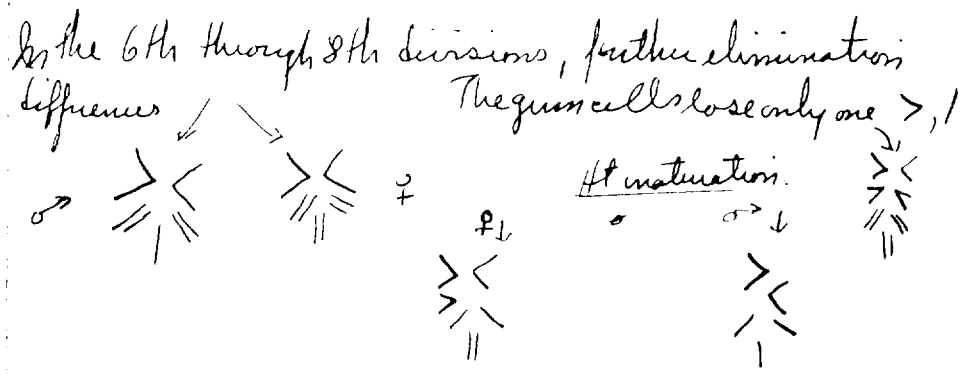 In the 6th through 8th divisions, further elimination
differences The germ cells lose only one >, /
♂ ♀ At maturation.
♀ ♂